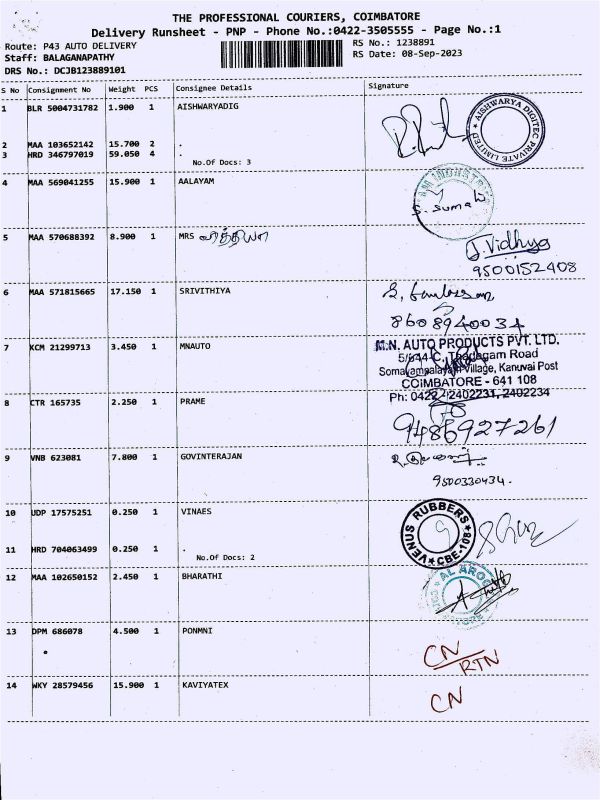 THE PROFESSIONAL COURIERS, COIMBATORE
Delivery Runsheet - PNP - Phone No.:0422-3505555 - Page No.:1
Route: P43 AUTO DELIVERY
RS No.: 1238891
Staff: BALAGANAPATHY
RS Date: 08-Sep-2023
DRS No.: DCJB123889101
S No Consignment No Weight PCS Consignee Details Signature
1 BLR 5004731782 1.900 1 AISHWARYADIG
AISHWARYA DIGITEC PRIVATE LIMITED
2 MAA 103652142 15.700 2 .
3 HRD 346797019 59.050 4 .
No.Of Docs: 3
4 MAA 569041255 15.900 1 AALAYAM
5 MAA 570688392 8.900 1 MRS வித்தியா
J Vidhya
9500152408
6 MAA 571815665 17.150 1 SRIVITHIYA
8608940034
7 KCM 21299713 3.450 1 MNAUTO
M.N. AUTO PRODUCTS PVT. LTD.
5/644-C, Thadagam Road
Somayampalayam Village, Kanuvai Post
COIMBATORE - 641 108
Ph: 0422 - 2402231, 2402234
8 CTR 165735 2.250 1 PRAME
9486927261
9 VNB 623081 7.800 1 GOVINTERAJAN
9500330434.
10 UDP 17575251 0.250 1 VINAES
VENUS RUBBERS CBE-108
11 HRD 704063499 0.250 1 .
No.Of Docs: 2
12 MAA 102650152 2.450 1 BHARATHI
13 DPM 686078 4.500 1 PONMNI
CN/RTN
14 WKY 28579456 15.900 1 KAVIYATEX
CN